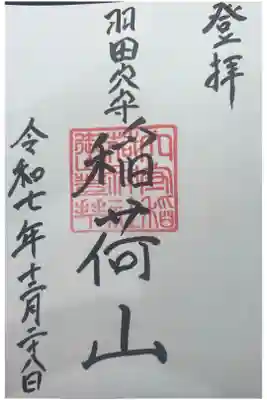 登拝
羽田穴守
稲荷山
令和七年十二月二十八日